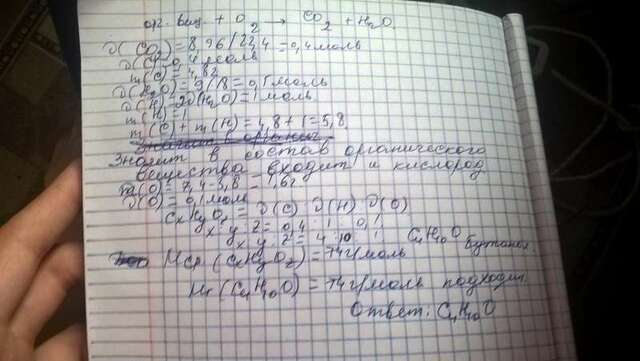 орг. вещ. + O2 → CO2 + H2O
ν(CO2) = 8,96/22,4 = 0,4 моль
ν(C) = 0,4 моль
m(C) = 4,8г
ν(H2O) = 9/18 = 0,5 моль
ν(H) = 2ν(H2O) = 1 моль
m(H) = 1
m(C) + m(H) = 4,8 + 1 = 5,8
Значит в состав органического
вещества входит и кислород
m(O) = 7,4-5,8 = 1,6г
ν(O) = 0,1 моль
CxHyOz = ν(C) ν(H) ν(O)
x:y:z = 0,4:1:0,1
x:y:z = 4:10:1 C4H10O
Mср. (CxHyOz) = 74г/моль
Mr (C4H10O) = 74г/моль подходит
Ответ: C4H10O